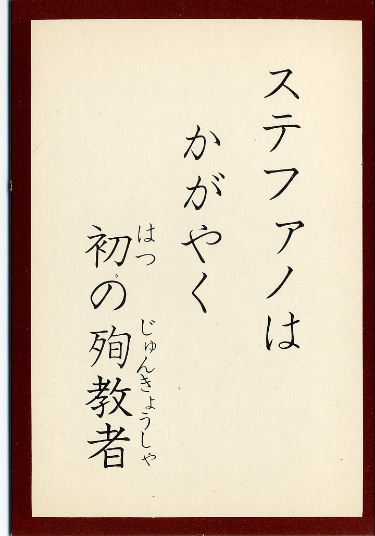 ステファノは
かがやく
初の殉教者
はつ
じゅんきょうしゃ